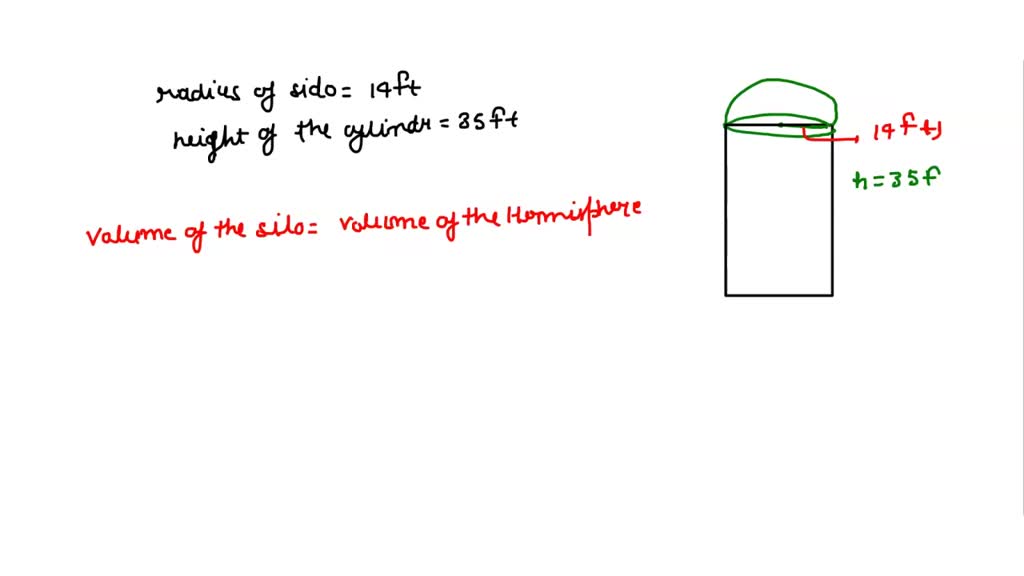 radius of sido = 14ft
height of the cylindr = 35ft
14ft
h = 35f
Volume of the silo = volume of the Hemisphere